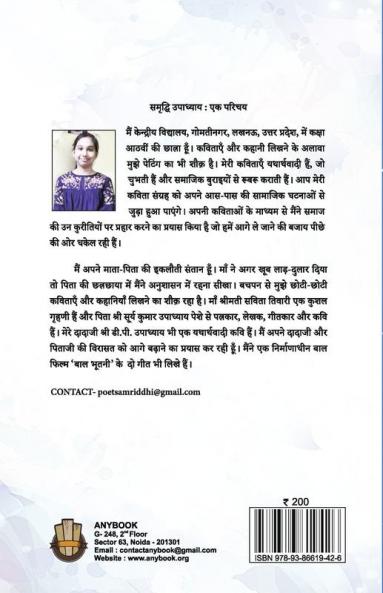 समृद्धि उपाध्याय : एक परिचय
मैं केन्द्रीय विद्यालय, गोमतीनगर, लखनऊ, उत्तर प्रदेश, में कक्षा
आठवीं की छात्रा हूँ। कविताएँ और कहानी लिखने के अलावा
मुझे पेटिंग का भी शौक़ है। मेरी कविताएँ यथार्थवादी हैं, जो
चुभती हैं और समाजिक बुराइयों से रूबरू कराती हैं। आप मेरी
कविता संग्रह को अपने आस-पास की सामाजिक घटनाओं से
जुड़ा हुआ पाएंगे। अपनी कविताओं के माध्यम से मैंने समाज
की उन कुरीतियों पर प्रहार करने का प्रयास किया है जो हमें आगे ले जाने की बजाय पीछे
की ओर धकेल रही हैं।
मैं अपने माता-पिता की इकलौती संतान हूँ। माँ ने अगर खूब लाड़-दुलार दिया
तो पिता की छत्रछाया में मैंने अनुशासन में रहना सीखा। बचपन से मुझे छोटी-छोटी
कविताएँ और कहानियाँ लिखने का शौक़ रहा है। माँ श्रीमती सविता तिवारी एक कुशल
गृहणी हैं और पिता श्री सूर्य कुमार उपाध्याय पेशे से पत्रकार, लेखक, गीतकार और कवि
हैं। मेरे दादाजी श्री डी.पी. उपाध्याय भी एक यथार्थवादी कवि हैं। मैं अपने दादाजी और
पिताजी की विरासत को आगे बढ़ाने का प्रयास कर रही हूँ। मैंने एक निर्माणाधीन बाल
फिल्म 'बाल भूतनी' के दो गीत भी लिखे हैं।
CONTACT- poetsamriddhi@gmail.com
₹ 200
ANYBOOK
G- 248, 2nd Floor
Sector 63, Noida - 201301
Email : contactanybook@gmail.com
Website : www.anybook.org
ISBN 978-93-86619-42-6